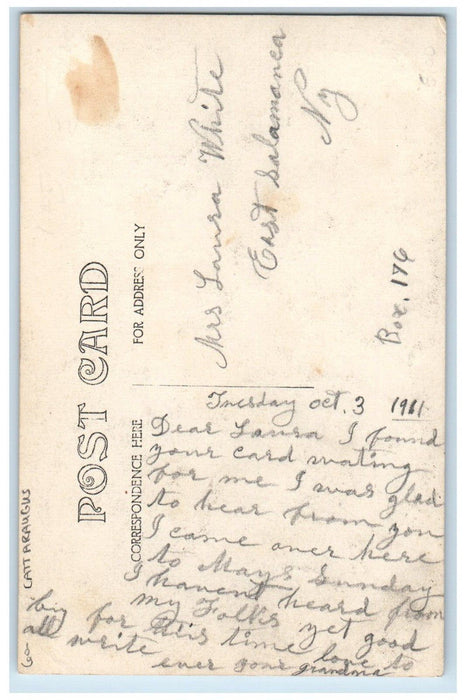 POST CARD
CORRESPONDENCE HERE
FOR ADDRESS ONLY
Mrs Laura White
East Salamanca
Ny
Box. 176
Tuesday Oct. 3 1911
Dear Laura I found
your card wating
for me I was glad
to hear from you
I came over here
to Mays Sunday
I havent heard from
my Folks yet good
by for this time love to
all write
ever your grandma
CATTARAUGUS